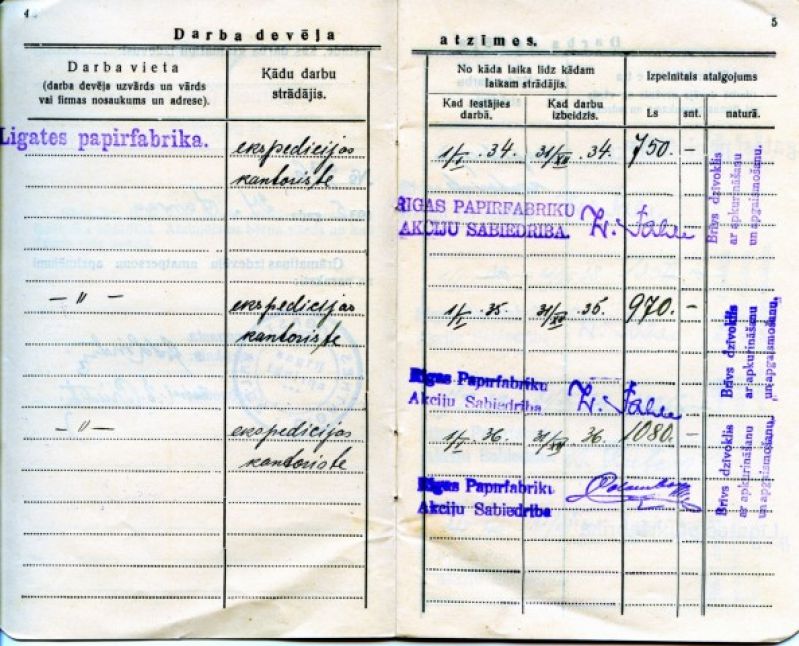 4
Darba devēja
Darba vieta
(darba devēja uzvārds un vārds
vai firmas nosaukums un adrese).
Kādu darbu
strādājis.
Ligates papirfabrika.
ekspedicijas
kantoriste
— „ —
ekspedicijas
kantoriste
— „ —
ekspedicijas
kantoriste
5
atzīmes.
No kāda laika līdz kādam
laikam strādājis.
Izpelnītais atalgojums
Kad iestājies
darbā.
Kad darbu
izbeidzis.
Ls
snt.
naturā.
1/I . 34.
31/XII . 34.
750.
—
Brīvs dzīvoklis
ar apkurināšanu
un apgaismošanu.
RIGAS PAPIRFABRIKU
AKCIJU SABIEDRIBA.
1/I . 35.
31/XII . 35.
970.
—
Brīvs dzīvoklis
ar apkurināšanu
un apgaismošanu.
Rīgas Papīrfabriku
Akciju Sabiedrība
1/I . 36.
31/XII . 36.
1080.
—
Brīvs dzīvoklis
ar apkurināšanu
un apgaismošanu.
Rīgas Papīrfabriku
Akciju Sabiedrība